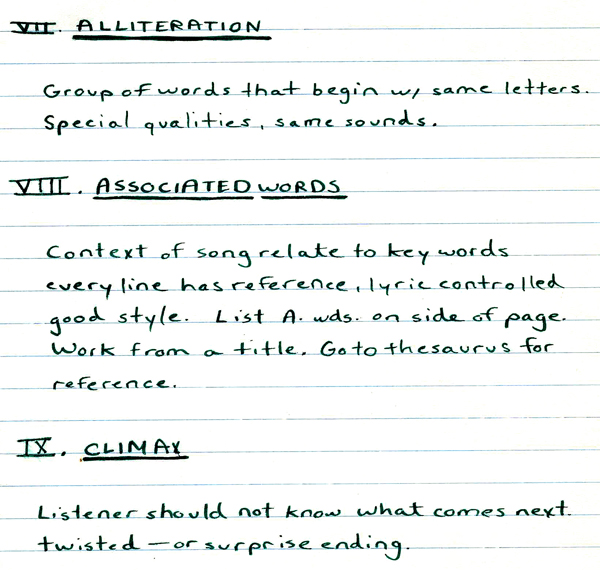 VII. ALLITERATION
Group of words that begin w/ same letters.
Special qualities, same sounds.
VIII. ASSOCIATED WORDS
Context of song relate to key words
every line has reference, lyric controlled
good style. List A. wds. on side of page.
Work from a title. Go to thesaurus for
reference.
IX. CLIMAX
Listener should not know what comes next.
twisted — or surprise ending.